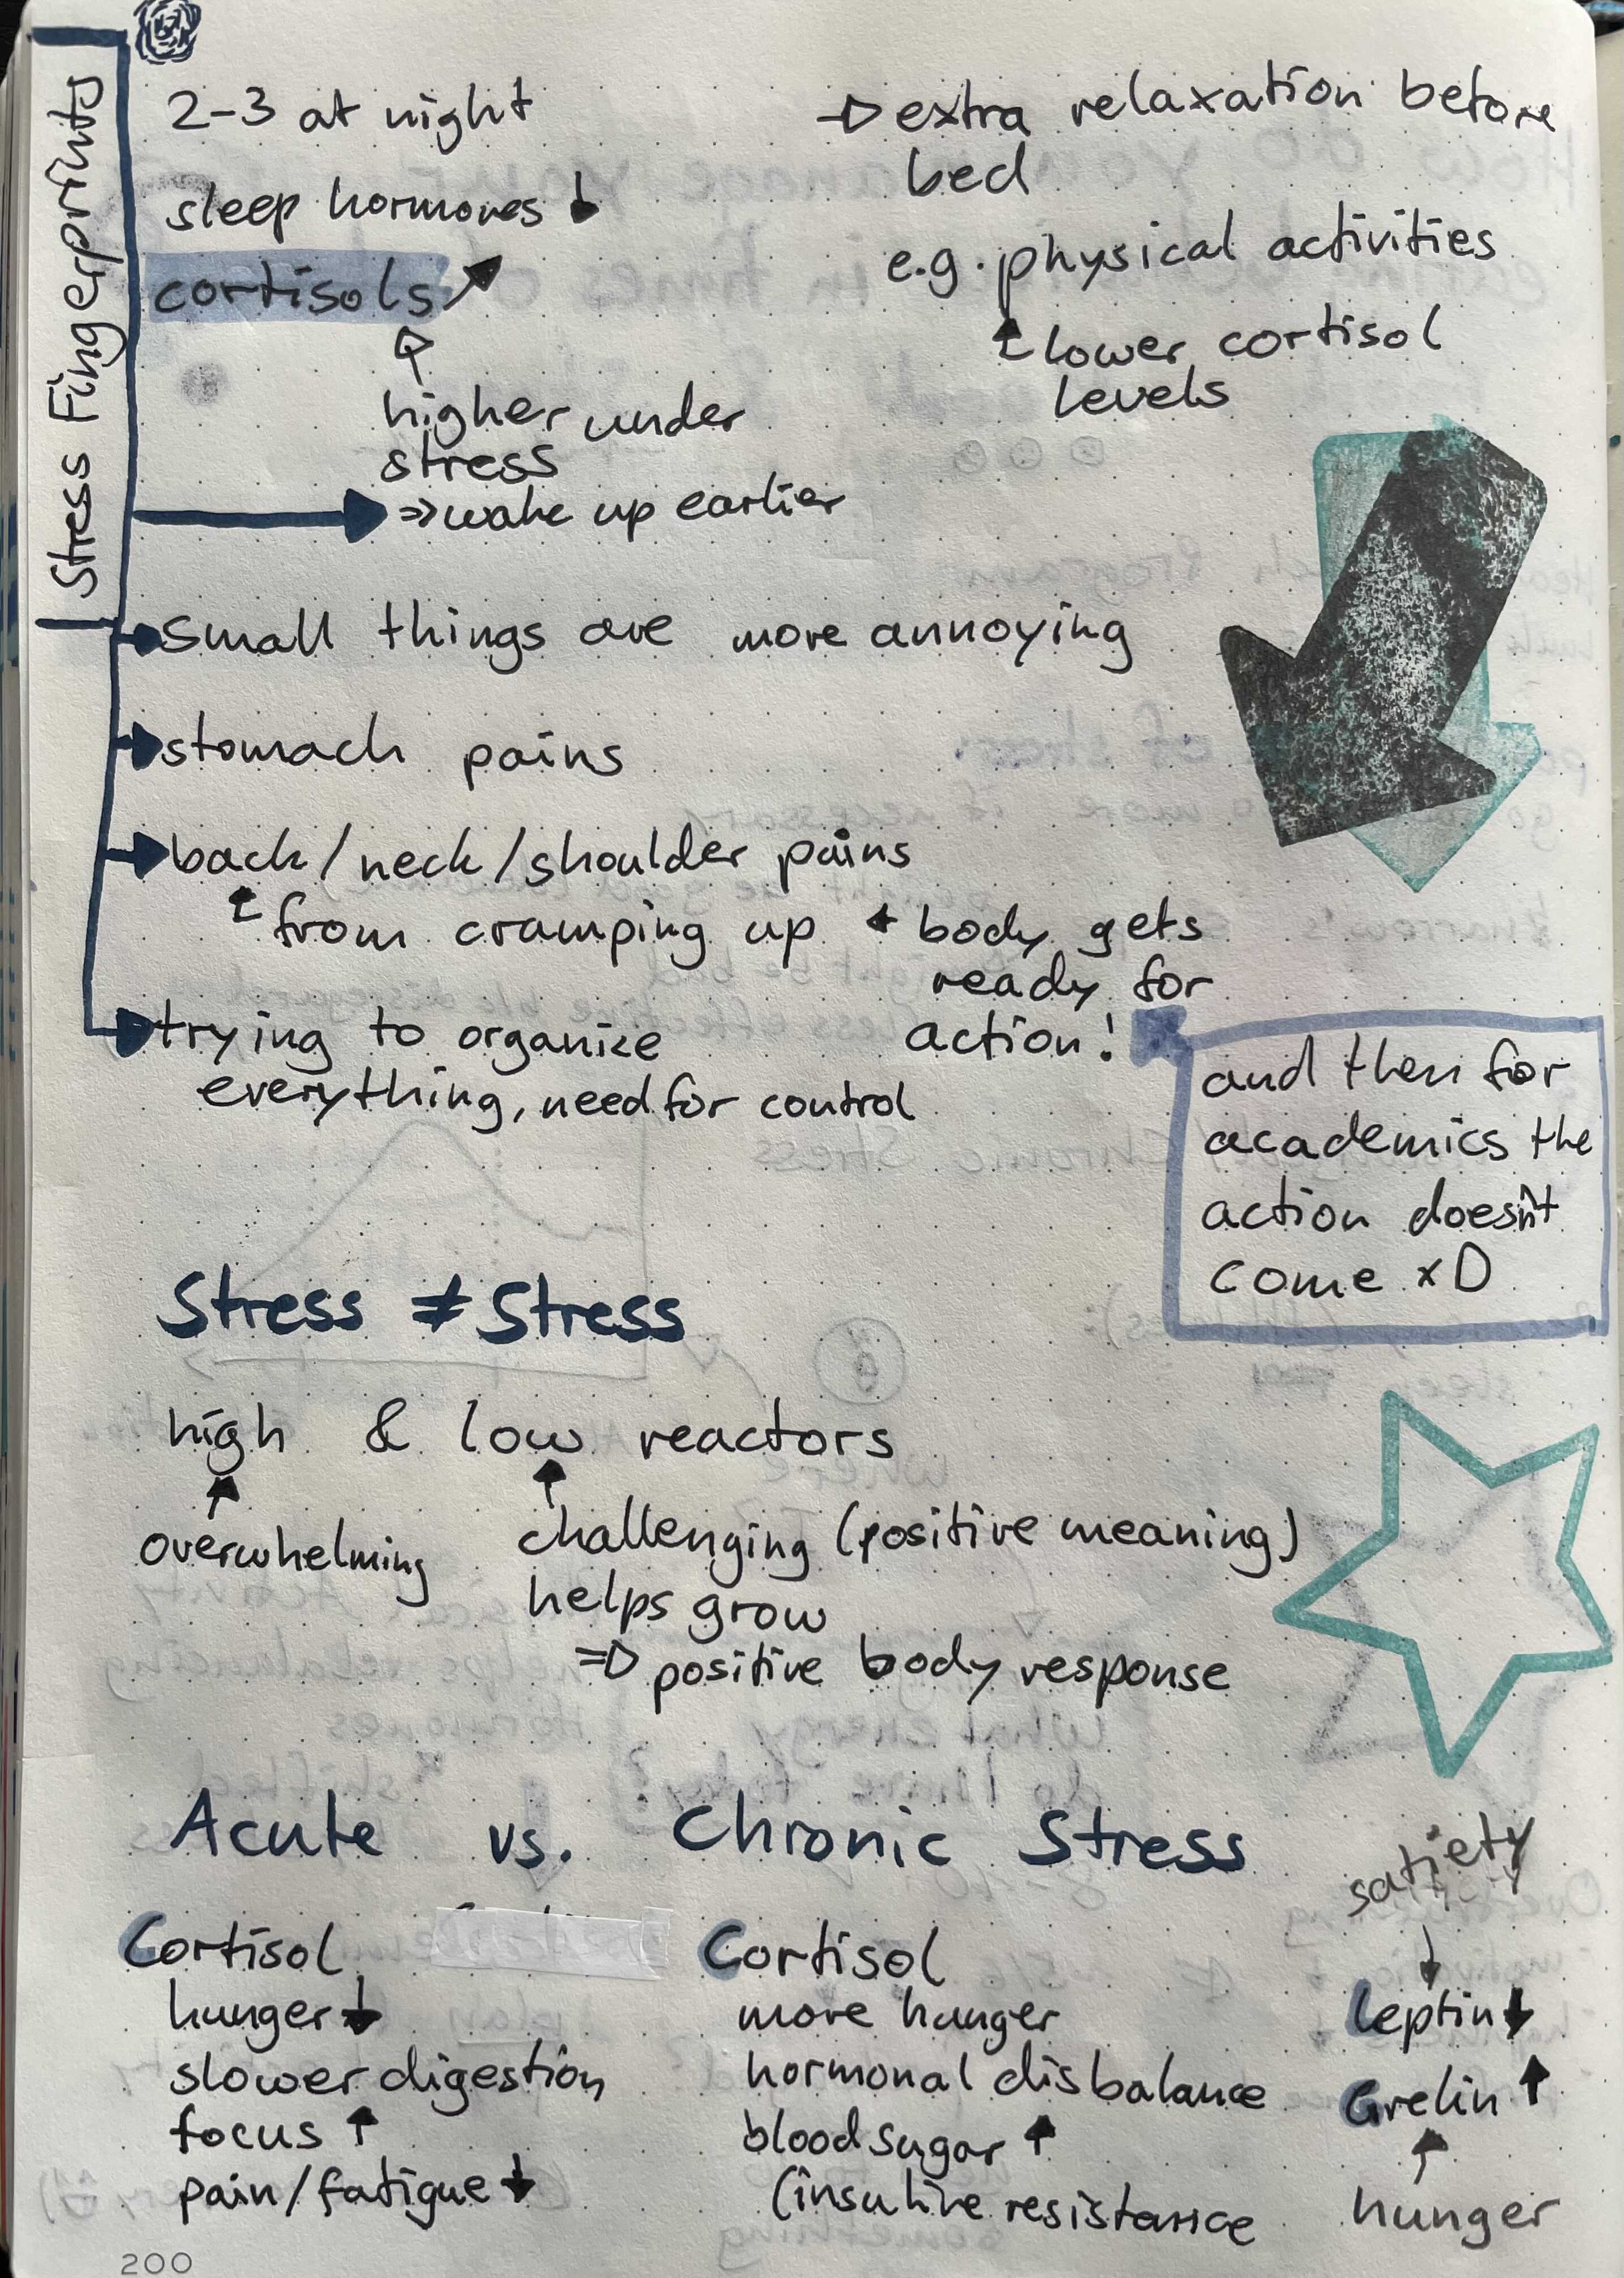 Stress Fingerprints
2-3 at night
sleep hormones ↓
cortisols ↗
higher under
stress
⇒ wake up earlier
→ extra relaxation before
bed
e.g. physical activities
lower cortisol
levels
small things are more annoying
stomach pains
back/neck/shoulder pains
from cramping up ← body gets
ready for
action!
and then for
academics the
action doesn't
come xD
trying to organize
everything, need for control
Stress ≠ Stress
high & low reactors
overwhelming
challenging (positive meaning)
helps grow
⇒ positive body response
Acute vs. Chronic Stress
Cortisol
hunger ↓
slower digestion
focus ↑
pain/fatigue ↓
Cortisol
more hunger
hormonal disbalance
blood sugar ↑
(insuline resistance
satiety
↓
leptin ↓
Grelin ↑
↑
hunger
200